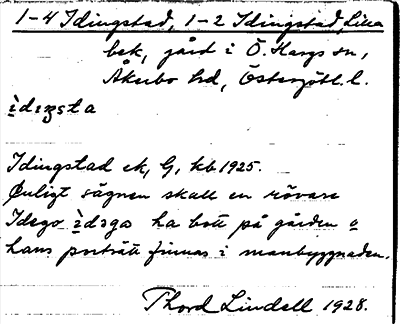 1-4 Idingstad, 1-2 Idingstad, Lilla
bek, gård i Ö. Hargs sn,
Åkerbo hd, Östergötl. l.
ìdıŋsta
Idingstad ek, G, kb 1925.
Enligt sägnen skall en rövare
Idego ìdəga ha bott på gården o
hans porträtt finnas i manbyggnaden.
Thord Lindell 1928.